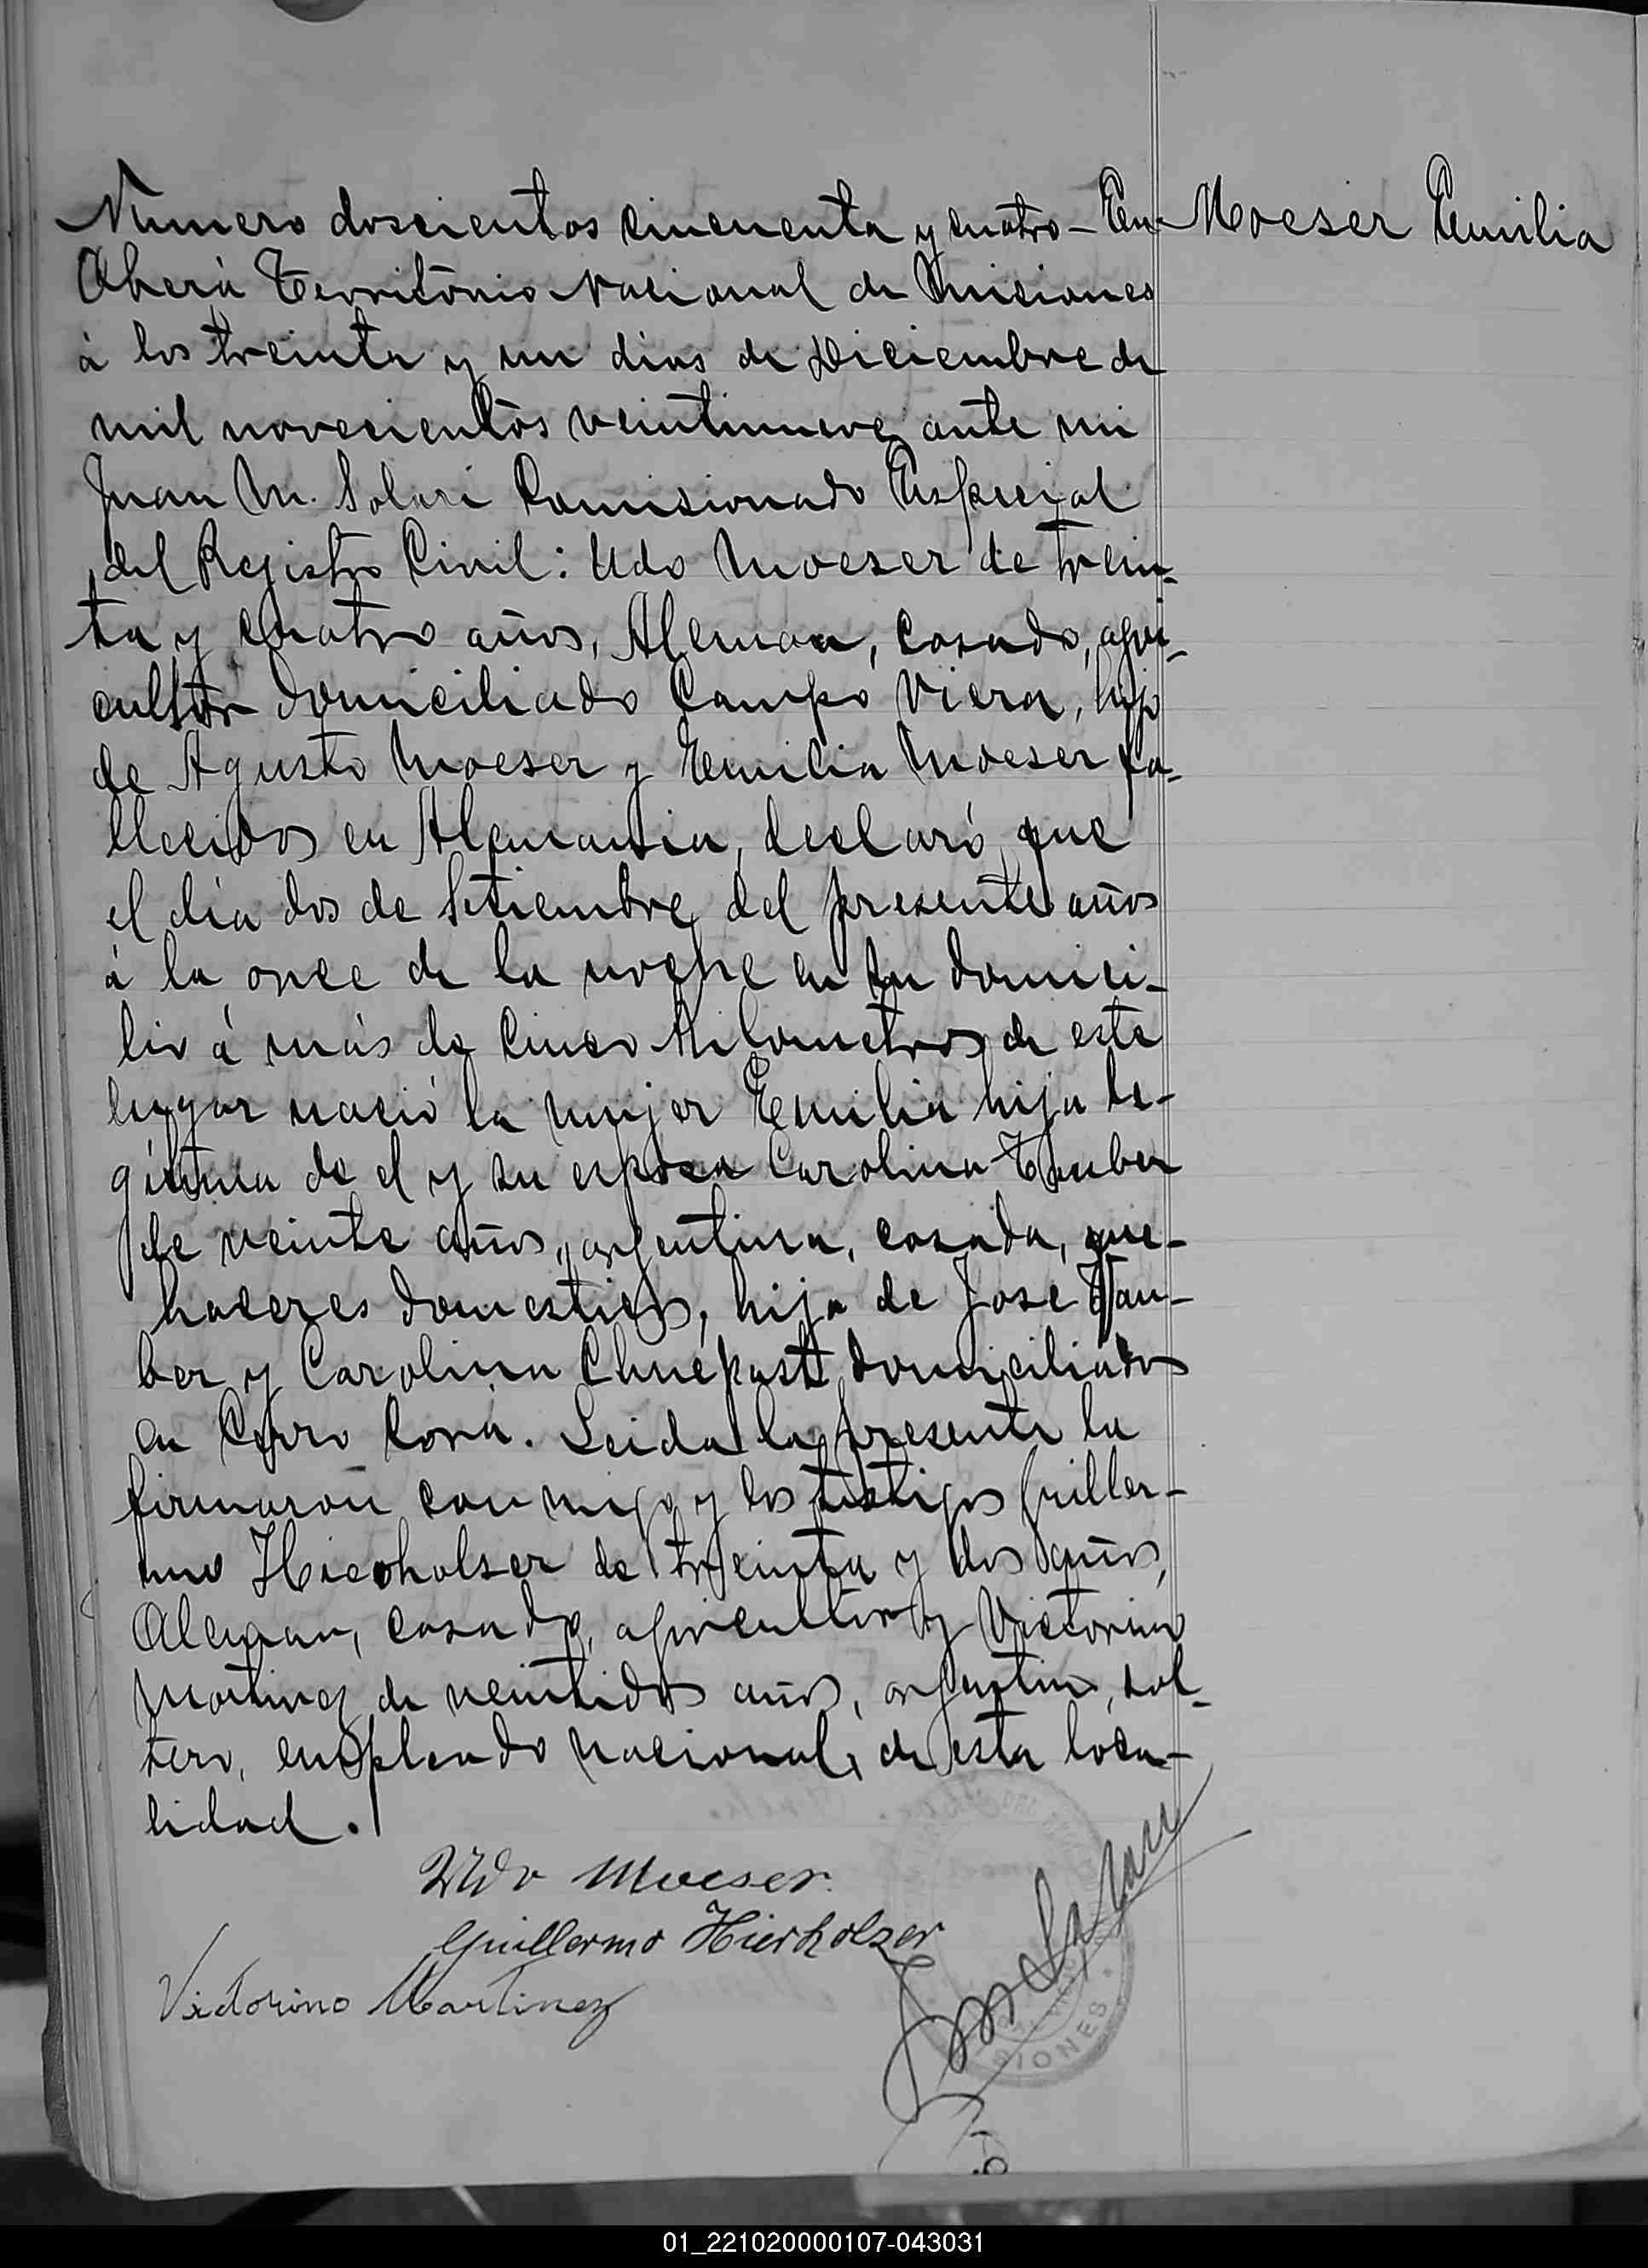 Número doscientos cincuenta y cuatro - En
Moeser Emilia
Oberá Território Nacional de Misiones
á los treinta y un dias de Diciembre de
mil novecientos veintinueve ante mi
Juan M. Solari Comisionado Especial
del Registro Civil: Udo Moeser de trein-
ta y cuatro años, Aleman, casado, agri-
cultor domiciliado Campo Viera, hijo
de Agusto Moeser y Emilia Moeser fa-
llecidos en Alemania, declaró que
el dia dos de Setiembre del presente años
á la once de la noche en su domici-
lio á más de cinco kilometros de este
lugar nació la mujer Emilia hija le-
gitima de el y su esposa Carolina Tauber
de veinte años, argentina, casada, que-
haceres domesticos, hija de Jose Tau-
ber y Carolina domiciliados
en Cerro Corá. Leida la presente la
firmaron conmigo y los testigos Guiller-
mo Hieholser de treinta y dos años,
Aleman, casado, agricultor y Victorino
Martinez de veintidos años, argentino, sol-
tero, empleado nacional, de esta loca-
lidad.
Udo Moeser.
Guillermo Hierholzer
Victorino Martinez
01_221020000107-043031